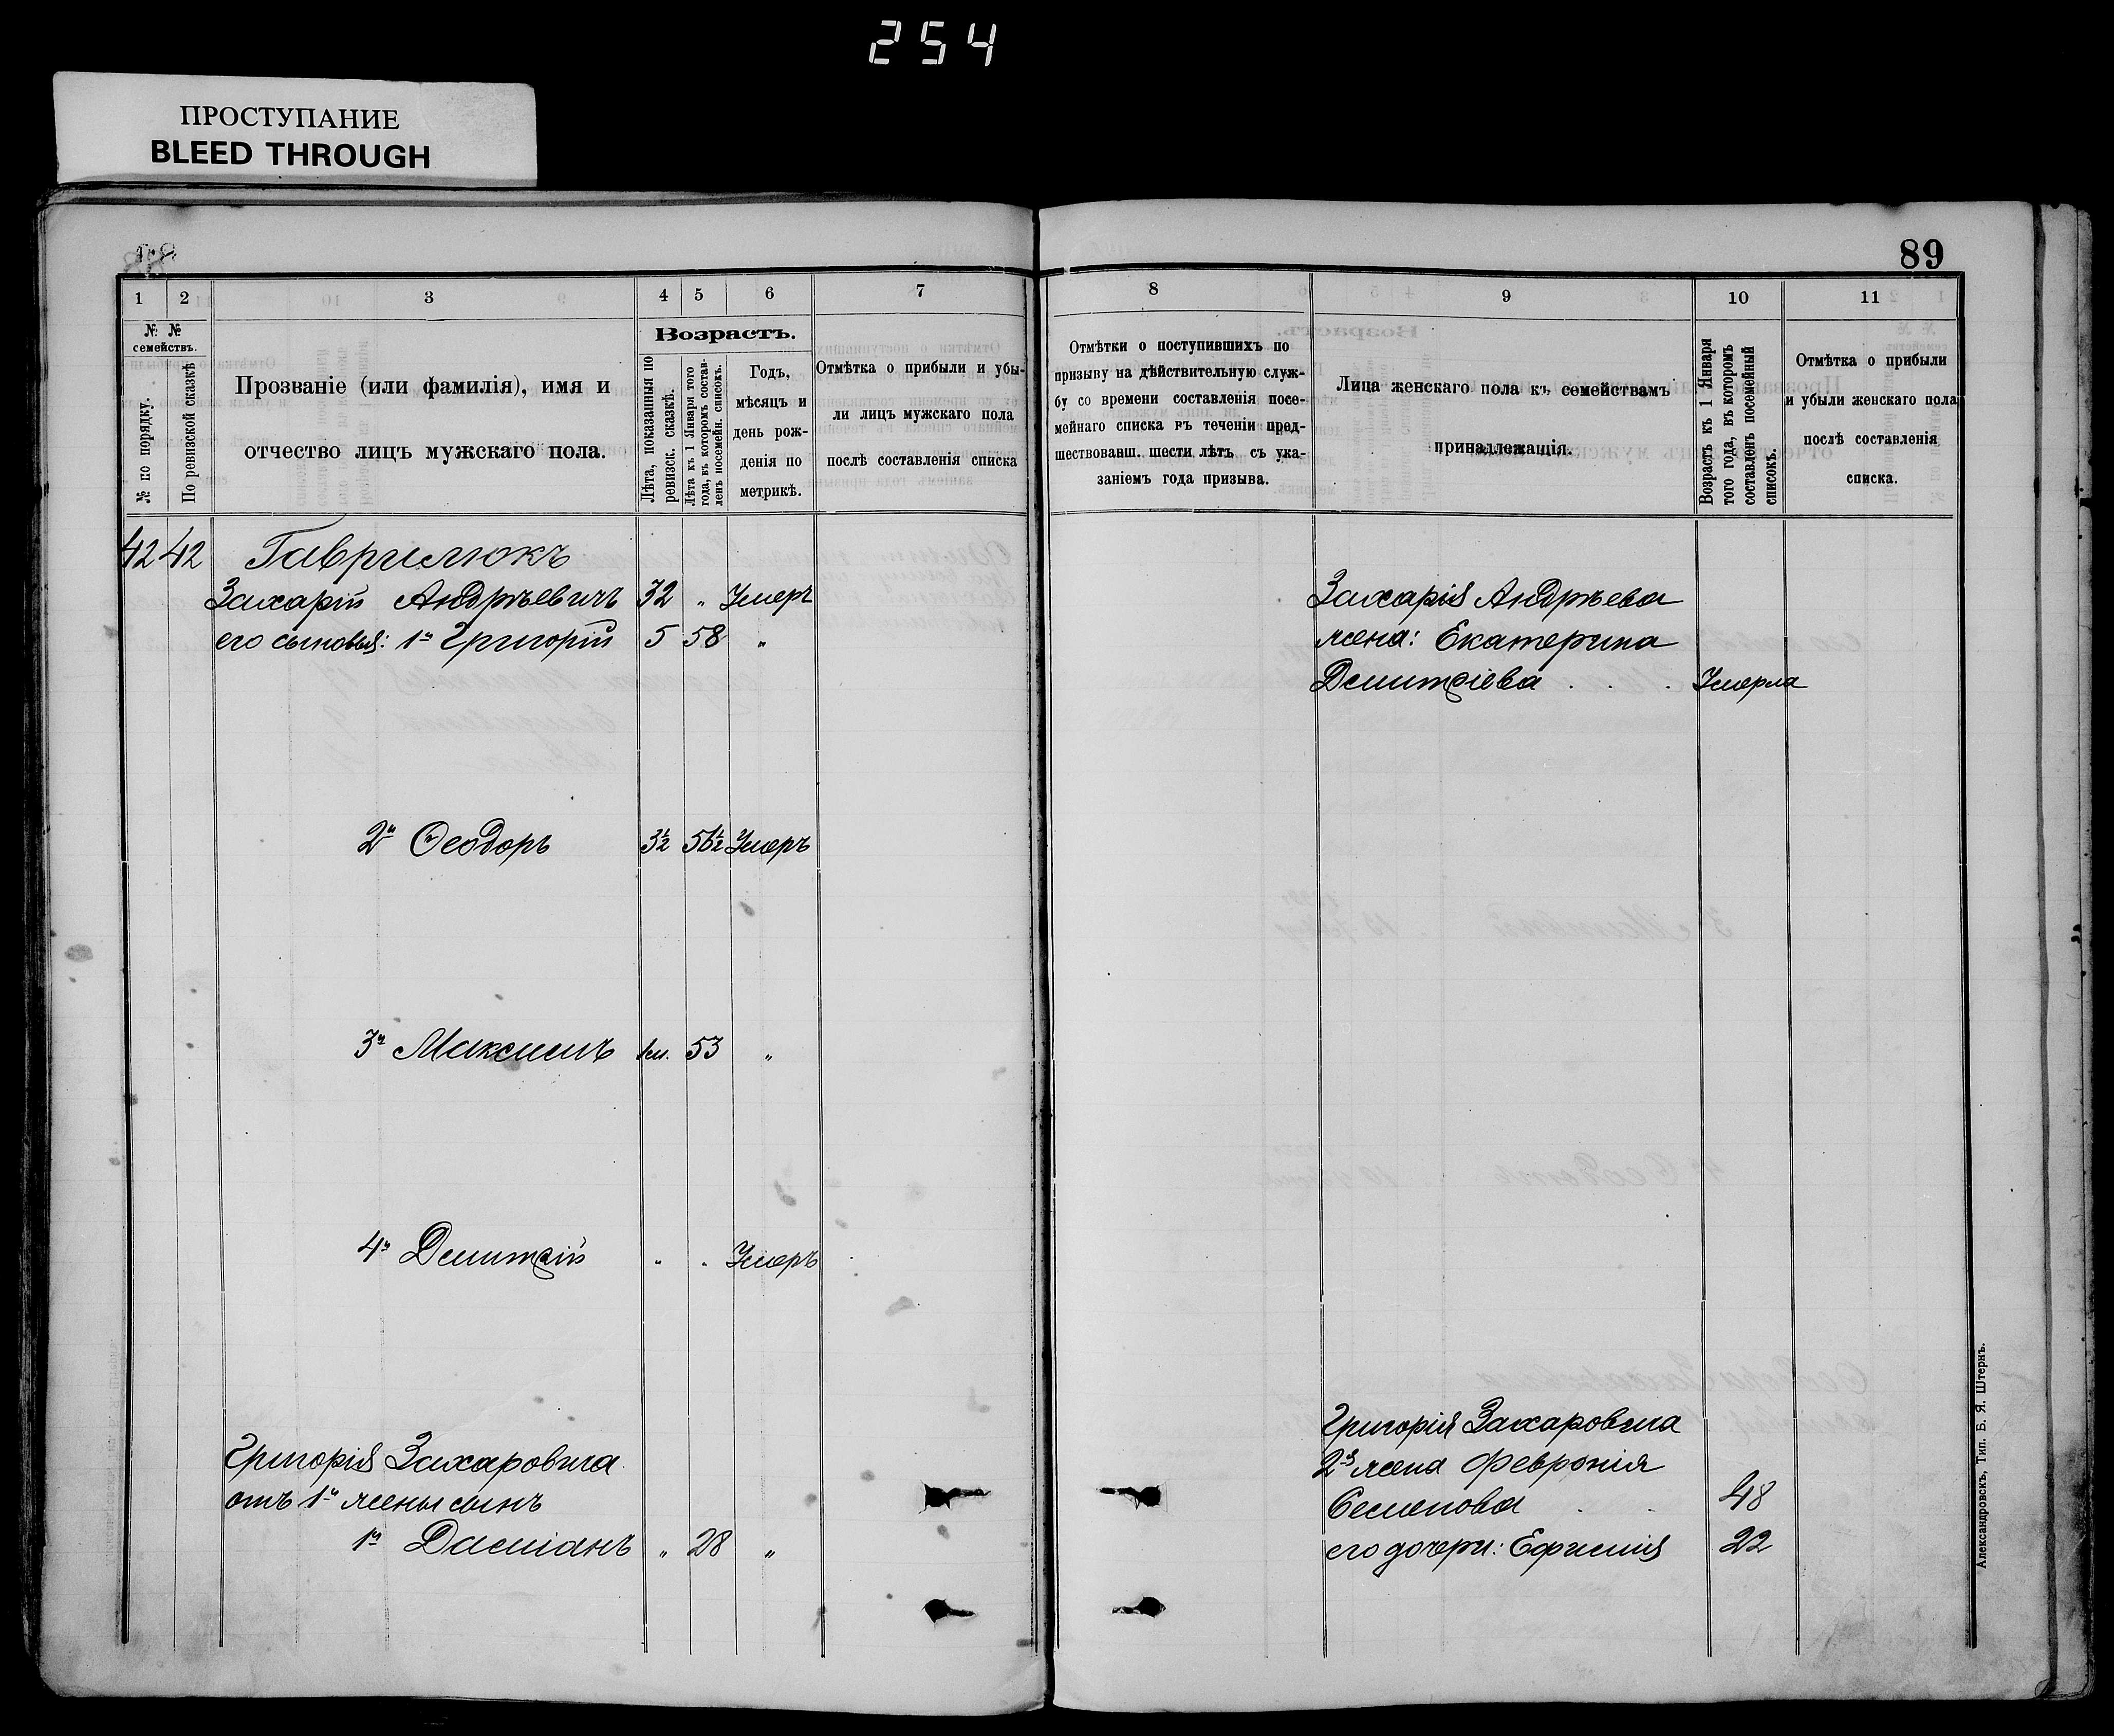 254
ПРОСТУПАНИЕ
BLEED THROUGH
89
1 2 3 4 5 6 7
№ № семействъ.
№ по порядку.
По ревизской сказкѣ
Прозваніе (или фамилія), имя и
отчество лицъ мужскаго пола.
Возрастъ.
Лѣта, показанныя по
ревизск. сказкѣ.
Лѣта къ 1 Января того
года, въ которомъ состав-
ленъ посемейн. списокъ.
Годъ,
мѣсяцъ и
день рож-
денія по
метрикѣ.
Отмѣтка о прибыли и убы-
ли лицъ мужскаго пола
послѣ составленія списка
42 42 Гаврилюкъ
Захарій Андрѣевичъ 32 " Умеръ
его сыновья: 1й Григорій 5 58 "
2й Ѳеодоръ 3½ 56½ Умеръ
3й Максимъ 1м. 53 "
4й Дмитрій " " Умеръ
Григорія Захаровича
отъ 1й жены сынъ
1й Даміанъ " 28 "
8 9 10 11
Отмѣтки о поступившихъ по
призыву на дѣйствительную служ-
бу со времени составленія посе-
мейнаго списка въ теченіи пред-
шествовавш. шести лѣтъ съ ука-
заніемъ года призыва.
Лица женскаго пола къ семействамъ
принадлежащія.
Возрастъ къ 1 Января
того года, въ которомъ
составленъ посемейный
списокъ.
Отмѣтка о прибыли
и убыли женскаго пола
послѣ составленія
списка.
Захарія Андрѣева
жена: Екатерина
Дмитріева . . . Умерла
Григорія Захаровича
2я жена Февронія
Семенова . . 48
его дочери: Ефимія 22
Александровскъ, Тип. Б. Я. Штернъ.